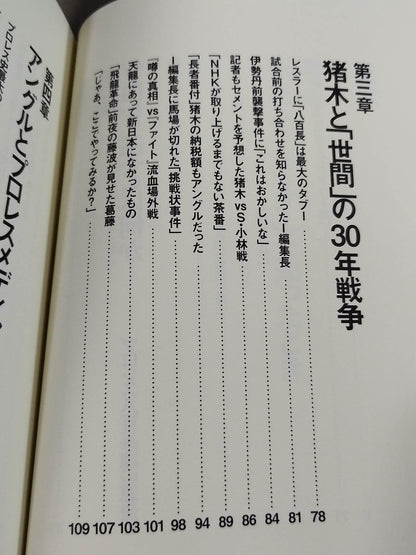 第三章
猪木と「世間」の30年戦争
レスラーに「八百長」は最大のタブー 78
試合前の打ち合わせを知らなかったI編集長 81
伊勢丹前襲撃事件に「これはおかしいな」 84
記者もセメントを予想した猪木vsS・小林戦 86
「NHKが取り上げるまでもない茶番」 89
「長者番付」猪木の納税額もアングルだった 94
I編集長に馬場が切れた「挑戦状事件」 98
『噂の真相』vs『ファイト』流血場外戦 101
天龍にあって新日本になかったもの 103
「飛龍革命」前夜の藤波が見せた葛藤 107
「じゃあ、ここでやってみるか?」 109
第四章
アングルとプロレスメディ